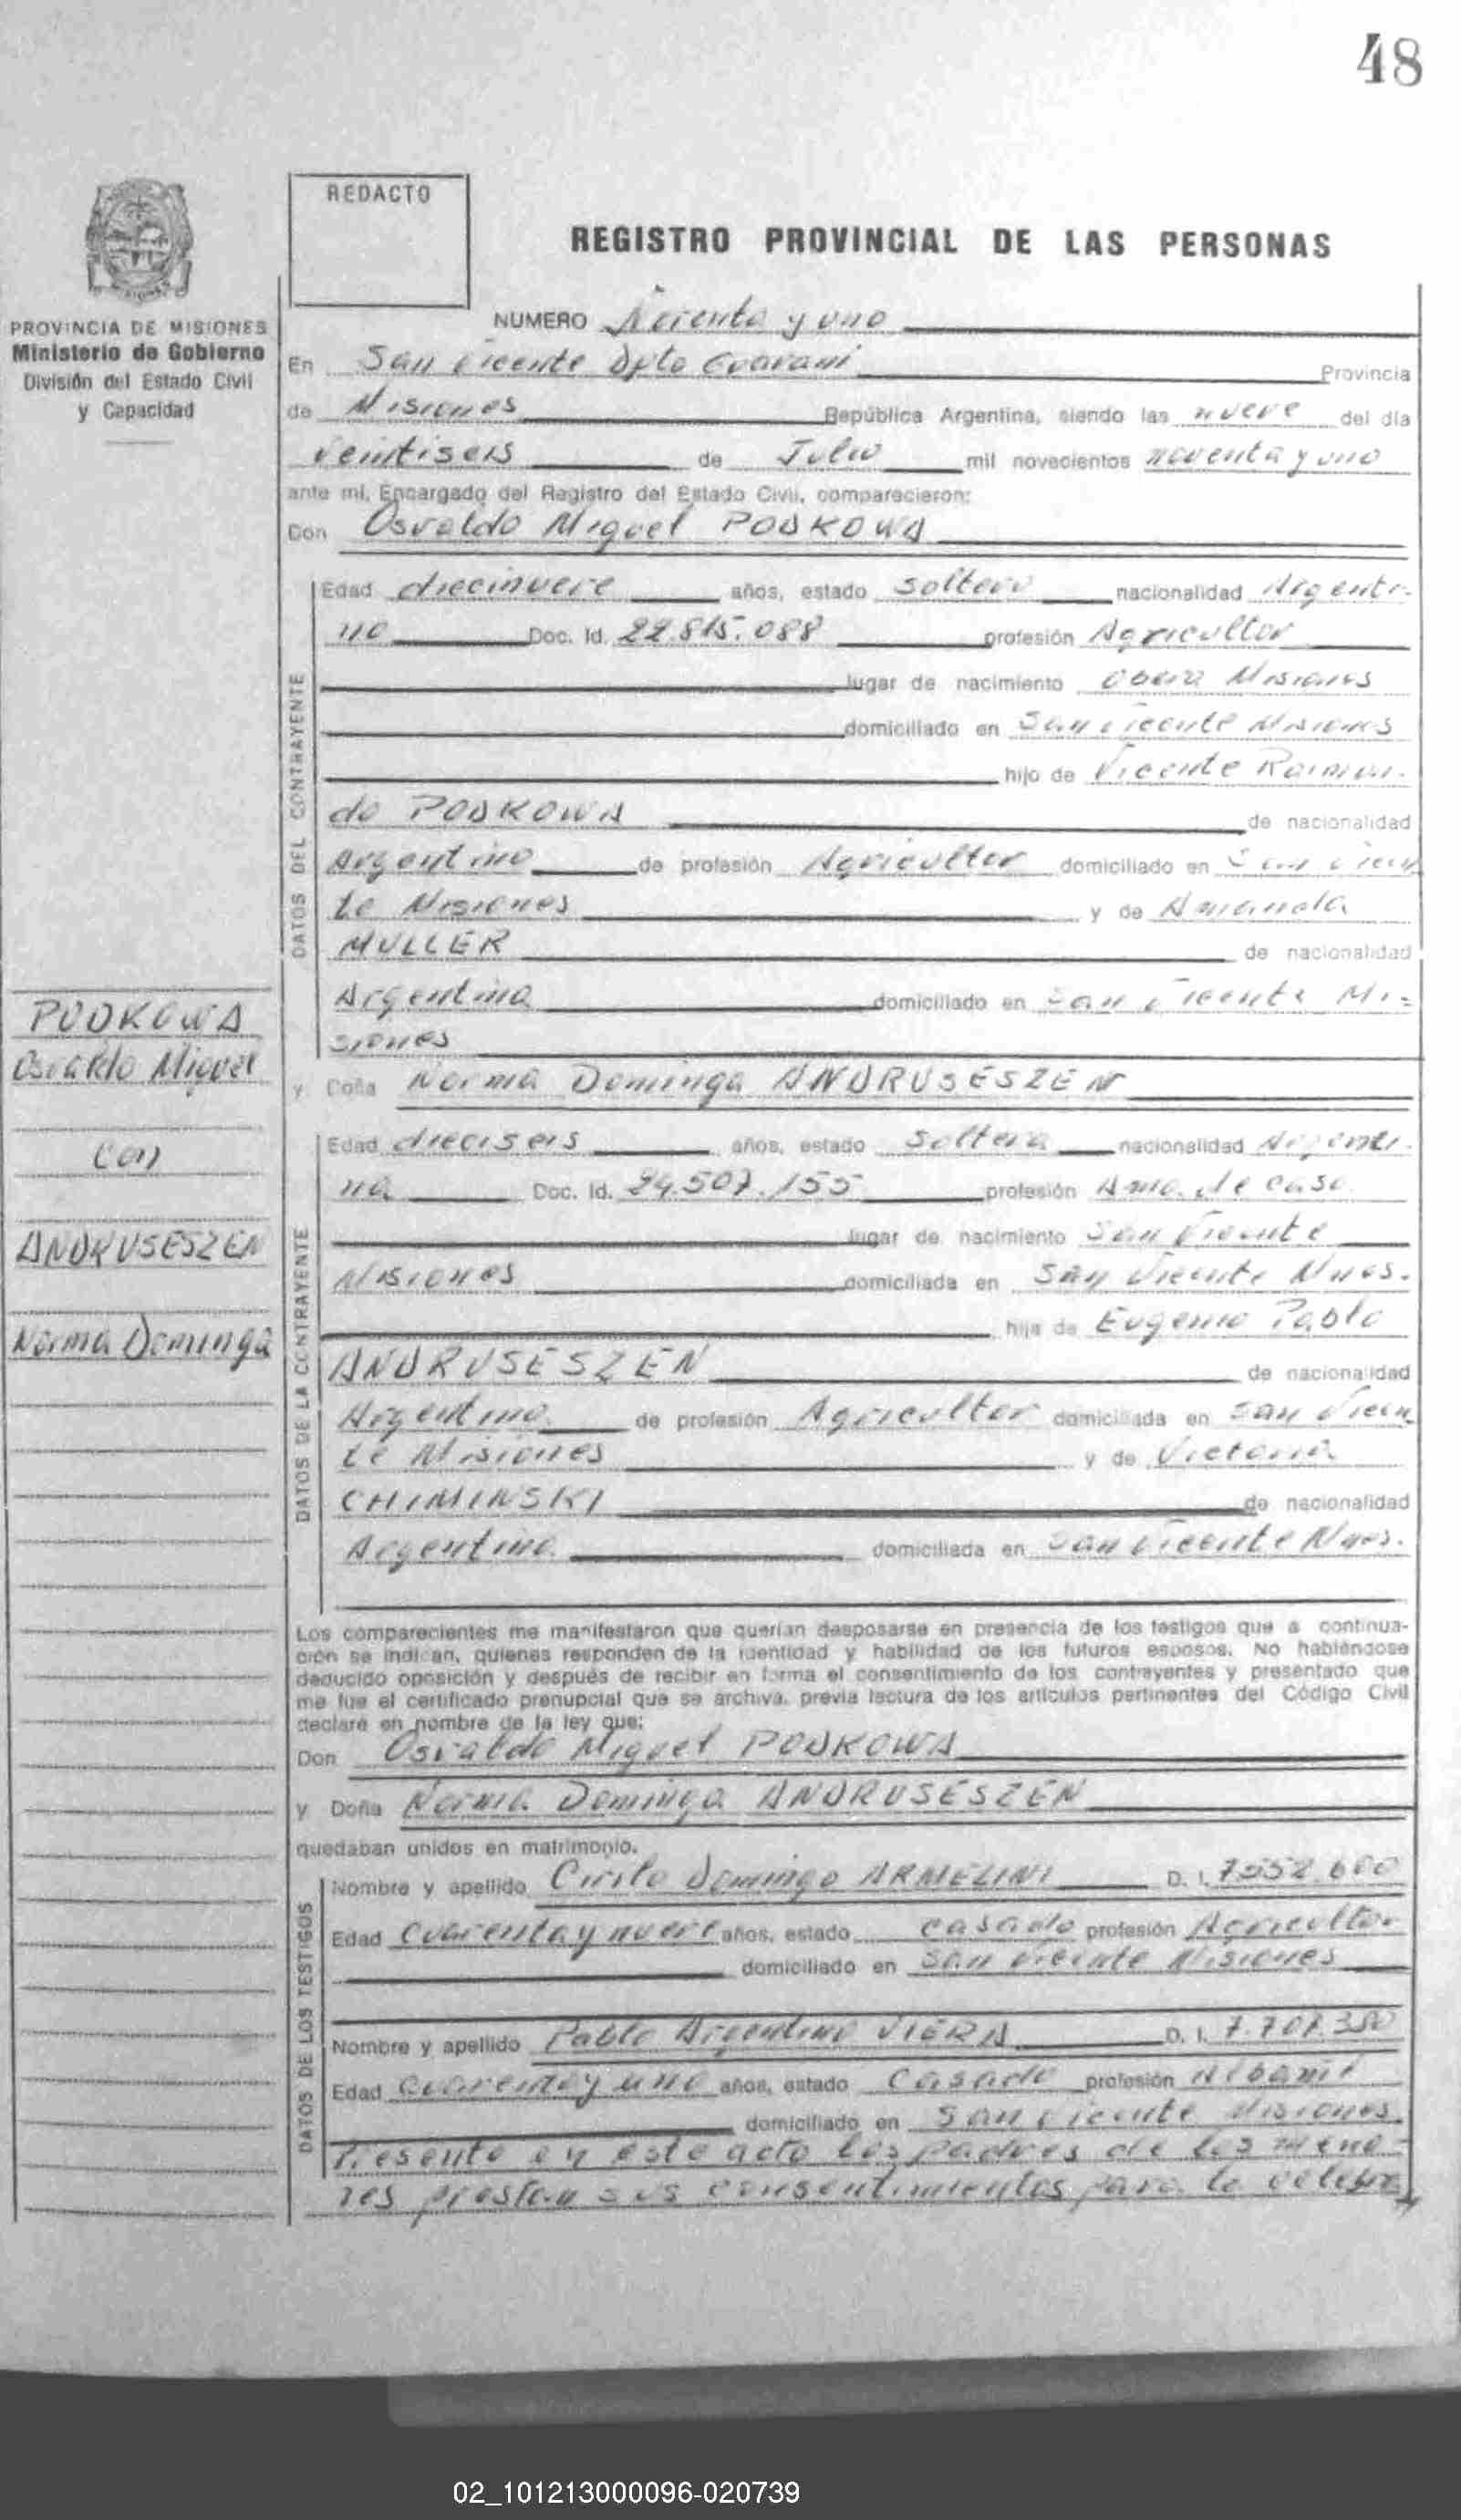 48
REDACTO
REGISTRO PROVINCIAL DE LAS PERSONAS
PROVINCIA DE MISIONES
Ministerio de Gobierno
División del Estado Civil
y Capacidad
NUMERO Noventa y uno
En San Vicente Dpto Guaraní Provincia
de Misiones República Argentina, siendo las nueve del día
veintiseis de Julio mil novecientos noventa y uno
ante mí, Encargado del Registro del Estado Civil, comparecieron:
Don Osvaldo Miguel PODKOWA
DATOS DEL CONTRAYENTE
Edad diecinueve años, estado soltero nacionalidad Argenti-
no Doc. Id. 22.815.088 profesión Agricultor
lugar de nacimiento Oberá Misiones
domiciliado en San Vicente Misiones
hijo de Vicente Raimun-
do PODKOWA de nacionalidad
Argentino de profesión Agricultor domiciliado en San Vicen
te Misiones y de Amanda
MULLER de nacionalidad
Argentina domiciliado en San Vicente Mi-
siones
PODKOWA
Osvaldo Miguel
con
ANDRUSESZEN
Norma Dominga
y Doña Norma Dominga ANDRUSESZEN
DATOS DE LA CONTRAYENTE
Edad dieciseis años, estado Soltera nacionalidad Argenti-
na Doc. Id. 24.507.155 profesión Ama de casa
lugar de nacimiento San Vicente
Misiones domiciliada en San Vicente Mnes.
hija de Eugenio Pablo
ANDRUSESZEN de nacionalidad
Argentino de profesión Agricultor domiciliada en San Vicen
te Misiones y de Victoria
CHIMINSKI de nacionalidad
Argentina domiciliada en San Vicente Mnes.
Los comparecientes me manifestaron que querían desposarse en presencia de los testigos que a continua-
ción se indican, quienes responden de la identidad y habilidad de los futuros esposos. No habiéndose
deducido oposición y después de recibir en forma el consentimiento de los contrayentes y presentado que
me fue el certificado prenupcial que se archiva, previa lectura de los artículos pertinentes del Código Civil
declaré en nombre de la ley que:
Don Osvaldo Miguel PODKOWA
y Doña Norma Dominga ANDRUSESZEN
quedaban unidos en matrimonio.
DATOS DE LOS TESTIGOS
Nombre y apellido Cirilo Domingo ARMELINI D. I. 7552.600
Edad Cuarenta y nueve años, estado casado profesión Agricultor
domiciliado en San Vicente Misiones
Nombre y apellido Pablo Argentino VIERA D. I.
Edad Cuarenta y uno años, estado Casado profesión Albañil
domiciliado en San Vicente Misiones
Presente en este acto los padres de los meno-
res prestan sus consentimientos para la celebra
02_101213000096-020739